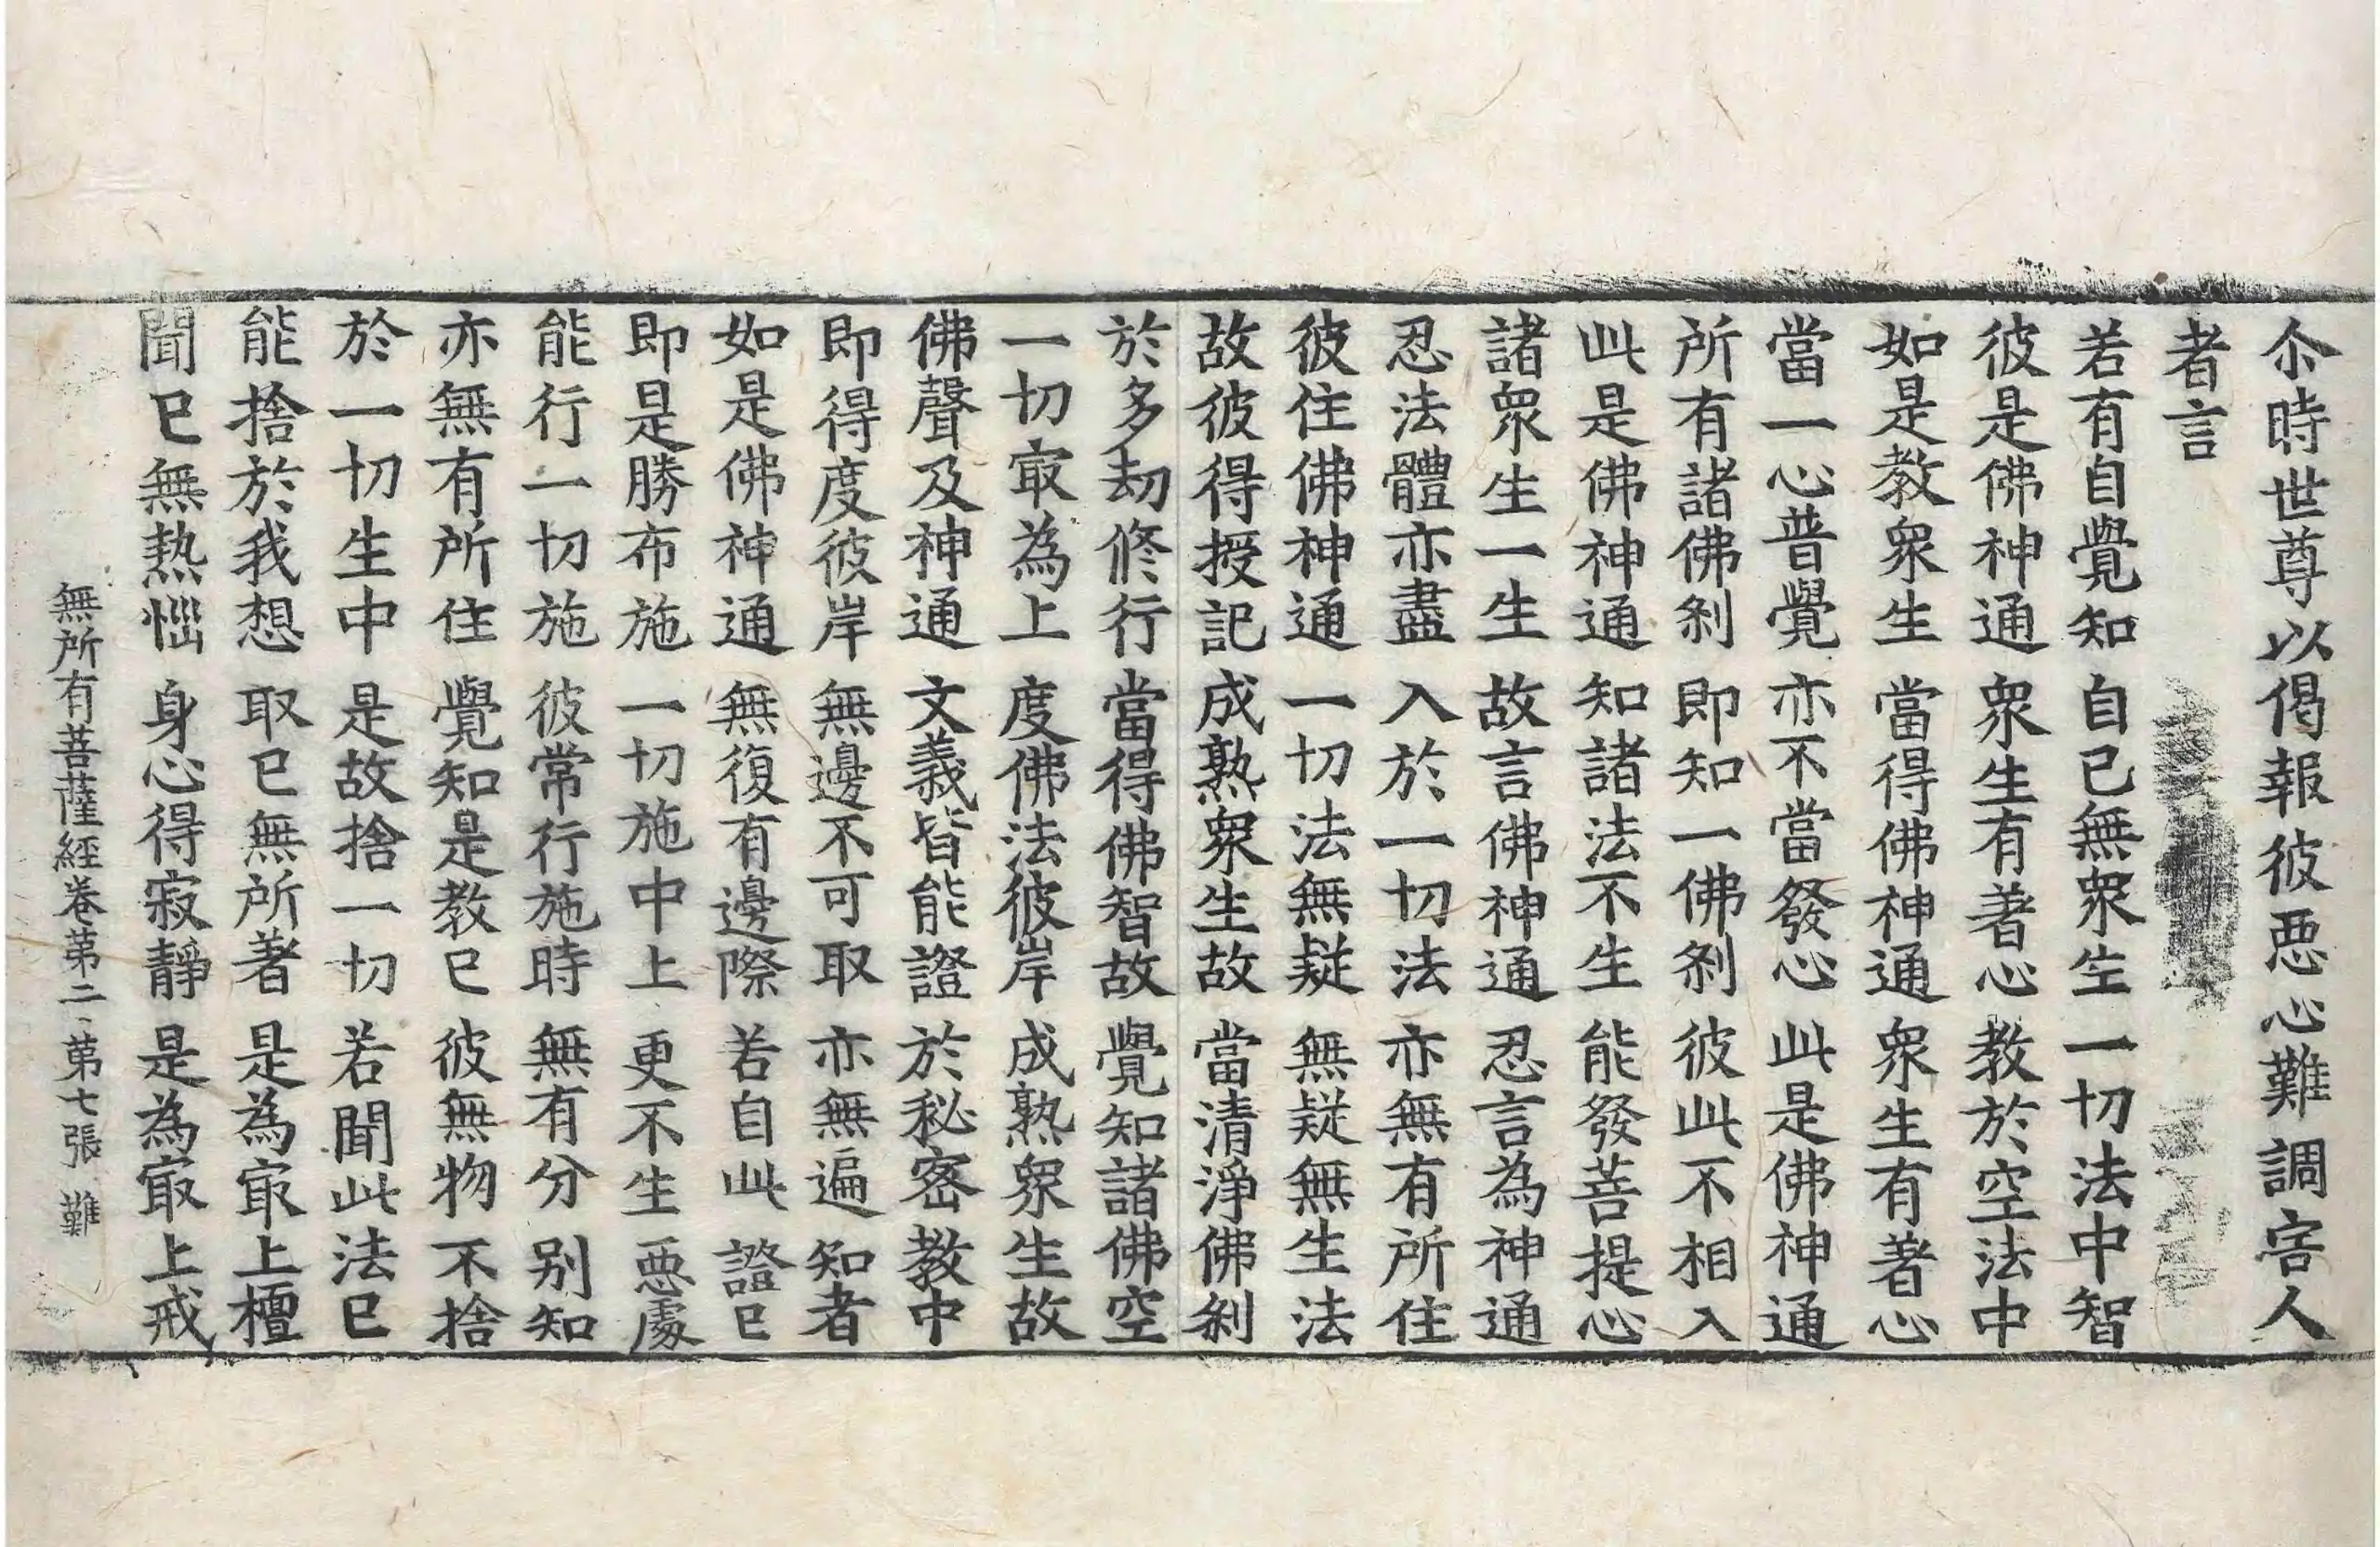 尒時世尊以偈報彼惡心難調害人
者言
若有自覺知　自已無衆生　一切法中智
彼是佛神通　衆生有著心　教於空法中
如是教衆生　當得佛神通　衆生有著心
當一心普覺　亦不當發心　此是佛神通
所有諸佛刹　即知一佛刹　彼此不相入
此是佛神通　知諸法不生　能發菩提心
諸衆生一生　故言佛神通　忍言為神通
忍法體亦盡　入於一切法　亦無有所住
彼住佛神通　一切法無疑　無疑無生法
故彼得授記　成熟衆生故　當清淨佛刹
於多劫修行　當得佛智故　覺知諸佛空
一切㝡為上　度佛法彼岸　成熟衆生故
佛聲及神通　文義皆能證　於秘密教中
即得度彼岸　無邊不可取　亦無遍知者
如是佛神通　無復有邊際　若自此證已
即是勝布施　一切施中上　更不生惡處
能行一切施　彼常行施時　無有分别知
亦無有所住　覺知是教已　彼無物不捨
於一切生中　是故捨一切　若聞此法已
能捨於我想　取已無所著　是為㝡上檀
聞已無熱惱　身心得寂靜　是為㝡上戒
無所有菩薩經卷第二　第七張　難